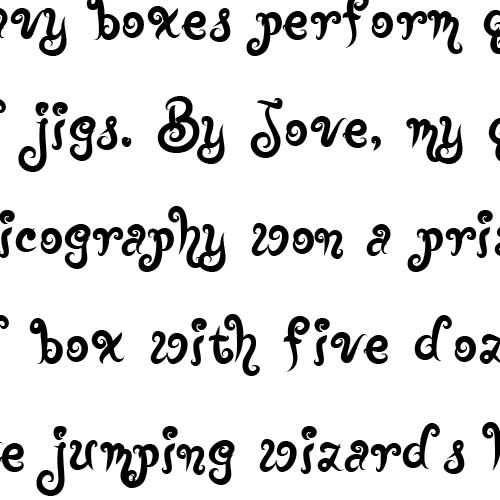 vy boxes perform
jigs. By Jove, my
icography won a pri
box with five doz
e jumping wizards